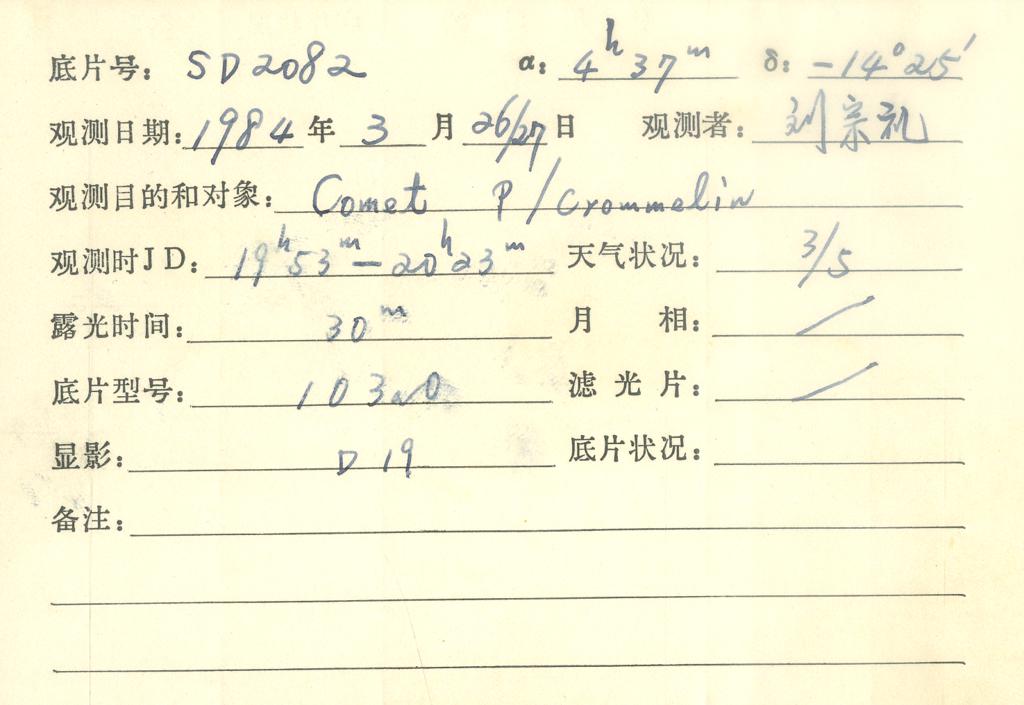 底片号: SD2082 α: 4ʰ37ᵐ δ: -14°25′
观测日期: 1984年 3 月 26/27日 观测者: 刘宗礼
观测目的和对象: Comet P/Crommelin
观测时JD: 19ʰ53ᵐ—20ʰ23ᵐ 天气状况: 3/5
露光时间: 30ᵐ 月 相: /
底片型号: 103a0 滤光片: /
显影: D19 底片状况:
备注: